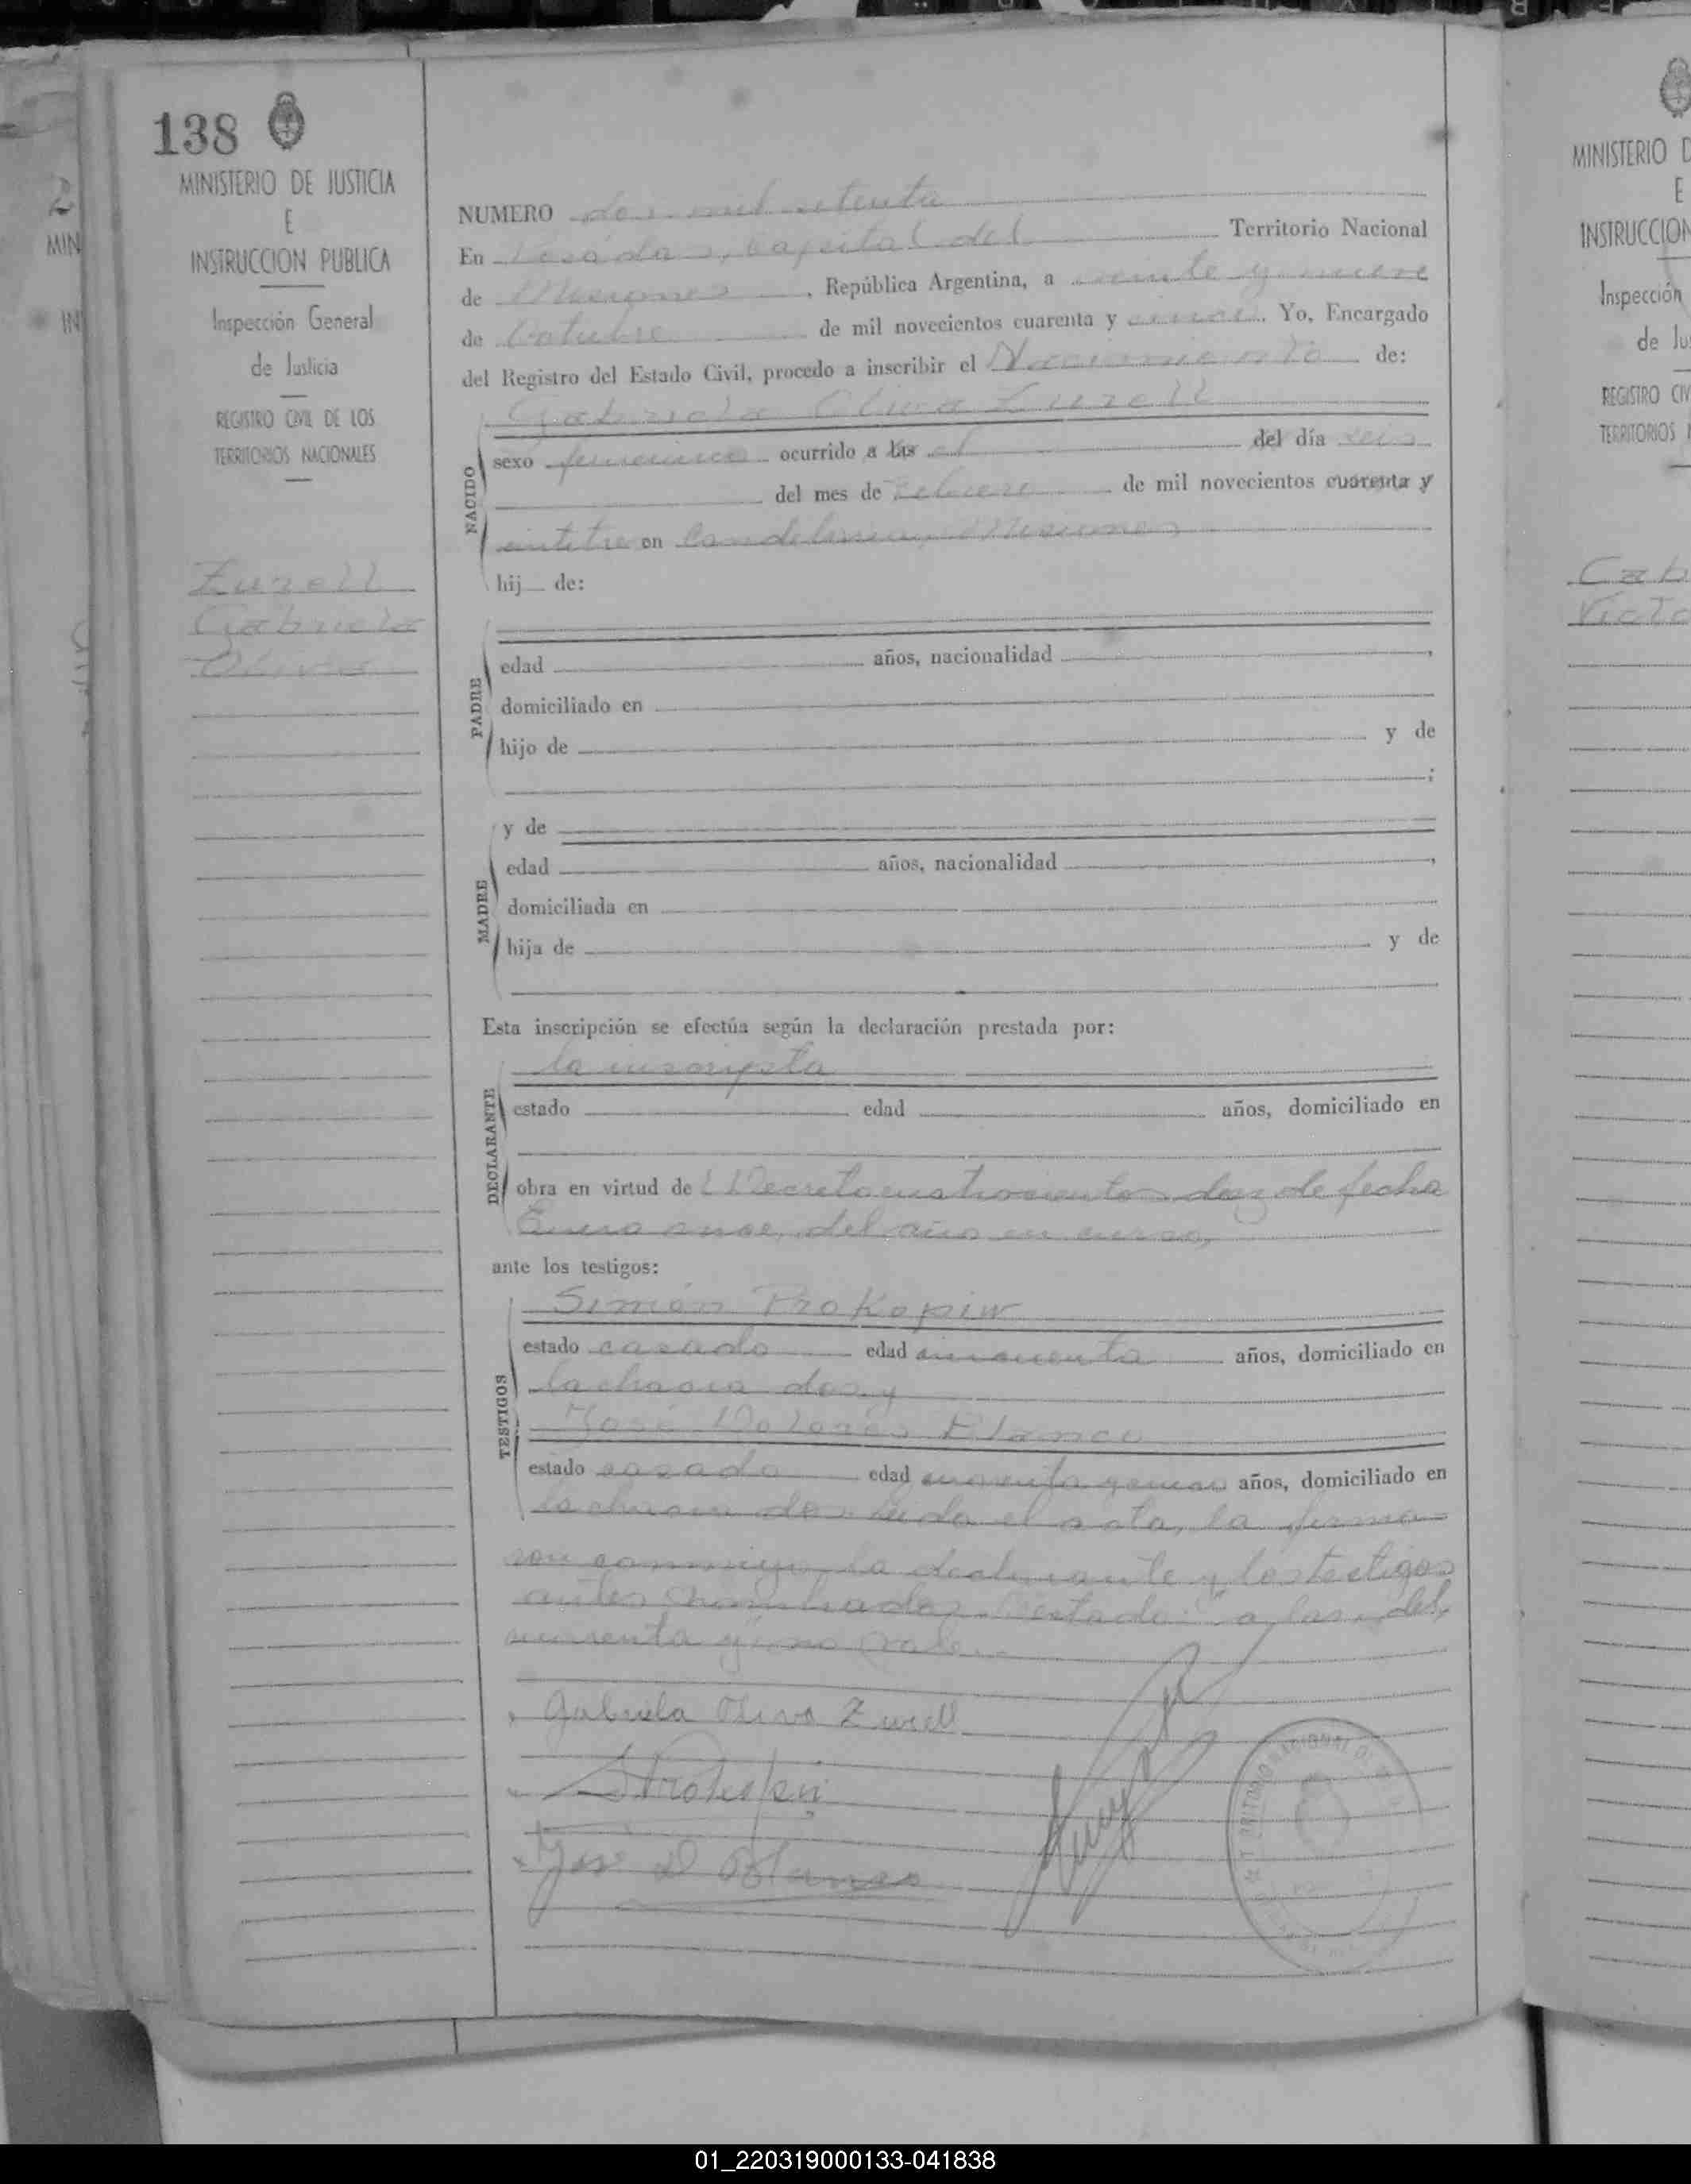 138
MINISTERIO DE JUSTICIA
E
INSTRUCCION PUBLICA
Inspección General
de Justicia
REGISTRO CIVIL DE LOS
TERRITORIOS NACIONALES
Zurell
Gabriela
Oliva
NUMERO dos mil setenta
En Posadas, Capital del Territorio Nacional
de Misiones, República Argentina, a veinte y nueve
de Octubre de mil novecientos cuarenta y cinco. Yo, Encargado
del Registro del Estado Civil, procedo a inscribir el Nacimiento de:
Gabriela Oliva Zurell
NACIDO
sexo femenino ocurrido a las el del día seis
del mes de Febrero de mil novecientos cuarenta y
en Candelaria, Misiones
hij de:
PADRE
edad años, nacionalidad ,
domiciliado en
hijo de y de
;
MADRE
y de
edad años, nacionalidad ,
domiciliada en
hija de y de
Esta inscripción se efectúa según la declaración prestada por:
DECLARANTE
la inscripta
estado edad años, domiciliado en
obra en virtud de l Decreto cuatrocientos diez de fecha
Enero once, del año en curso,
ante los testigos:
TESTIGOS
Simón Prokopiw
estado casado edad cincuenta años, domiciliado en
la chacra dos y
José Dolores Blanco
estado casado edad años, domiciliado en
la chacra dos. Leida el acta, la firma-
ron conmigo la declarante y los testigos
antes nombrados. Testado: "a las, del,
cuarenta y", no vale.
Gabriela Oliva Zurell
José D Blanco
MINISTERIO D
E
INSTRUCCION
Inspección
de Jus
REGISTRO CIV
TERRITORIOS N
Cab
Victo
MIN
IN
01_220319000133-041838